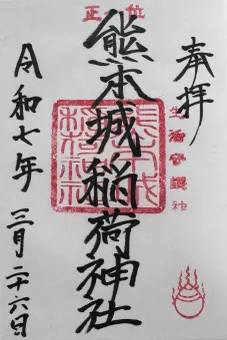 奉拝
正一位
生活守護神
熊本城稲荷神社
令和七年 三月二十六日